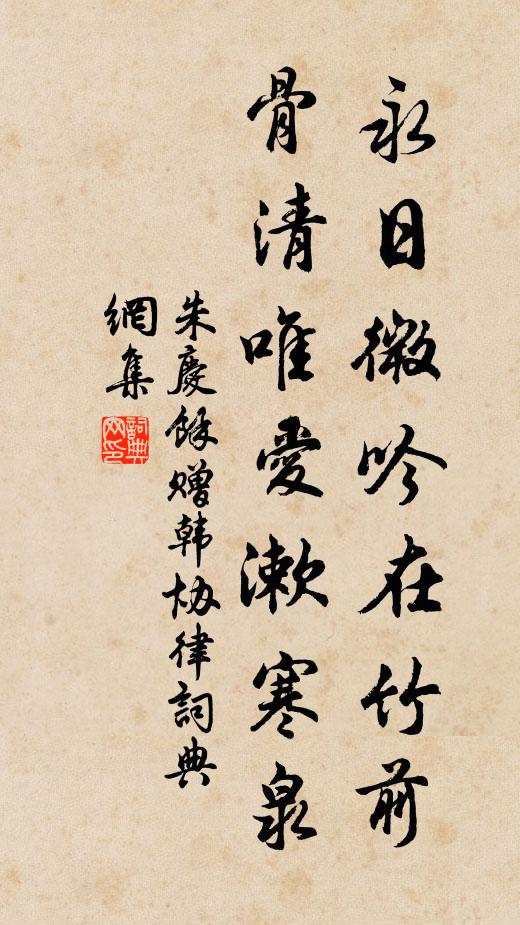 永日微吟在竹前
骨清唯愛漱寒泉
朱慶餘贈韩协律詞典
網集
詞典
网印